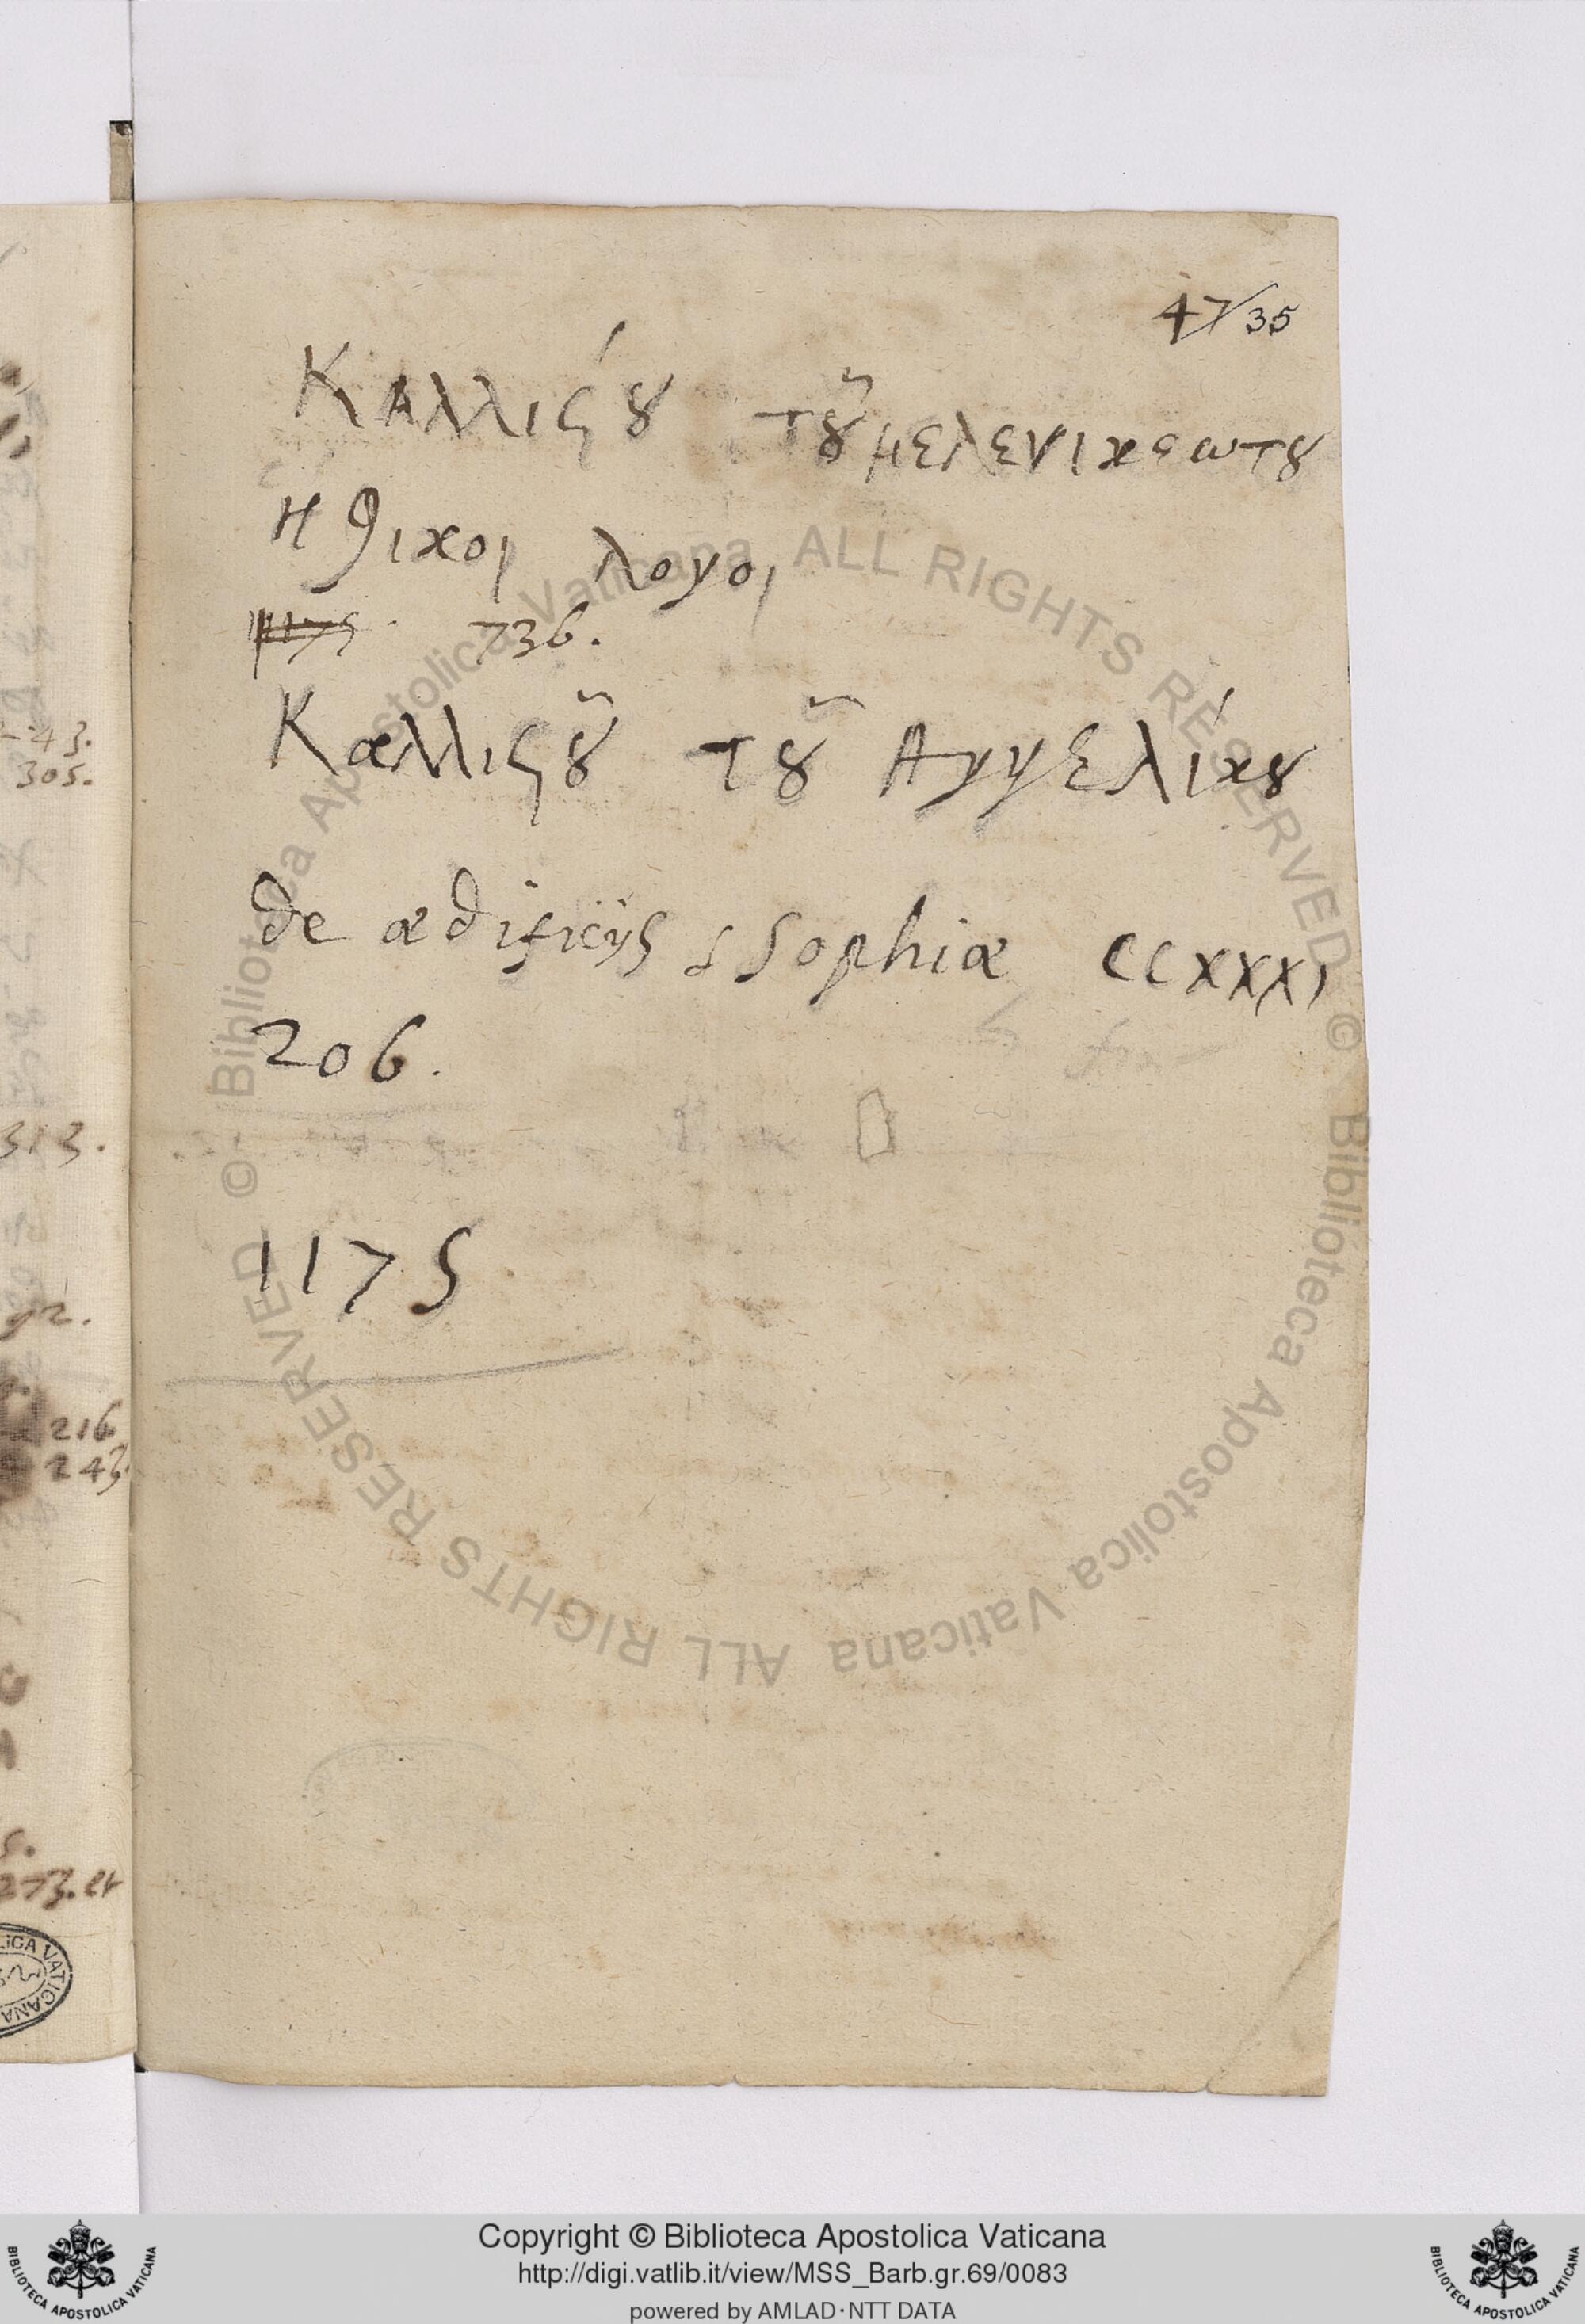 47/35
Καλλίϛȣ τȣ͂ μελενικεωτȣ
Ηθικοι λογοι
1175 . 736.
Καλλιϛȣ͂ τȣ͂ Αγγελίκȣ
de ædificiis S Sophiæ CCXXXI
206.
1175
43.
305.
313.
92.
216
243.
273. et
© Biblioteca Apostolica Vaticana ALL RIGHTS RESERVED © Biblioteca Apostolica Vaticana ALL RIGHTS RESERVED
Copyright © Biblioteca Apostolica Vaticana
http://digi.vatlib.it/view/MSS_Barb.gr.69/0083
powered by AMLAD·NTT DATA
BIBLIOTECA APOSTOLICA VATICANA
BIBLIOTECA APOSTOLICA VATICANA